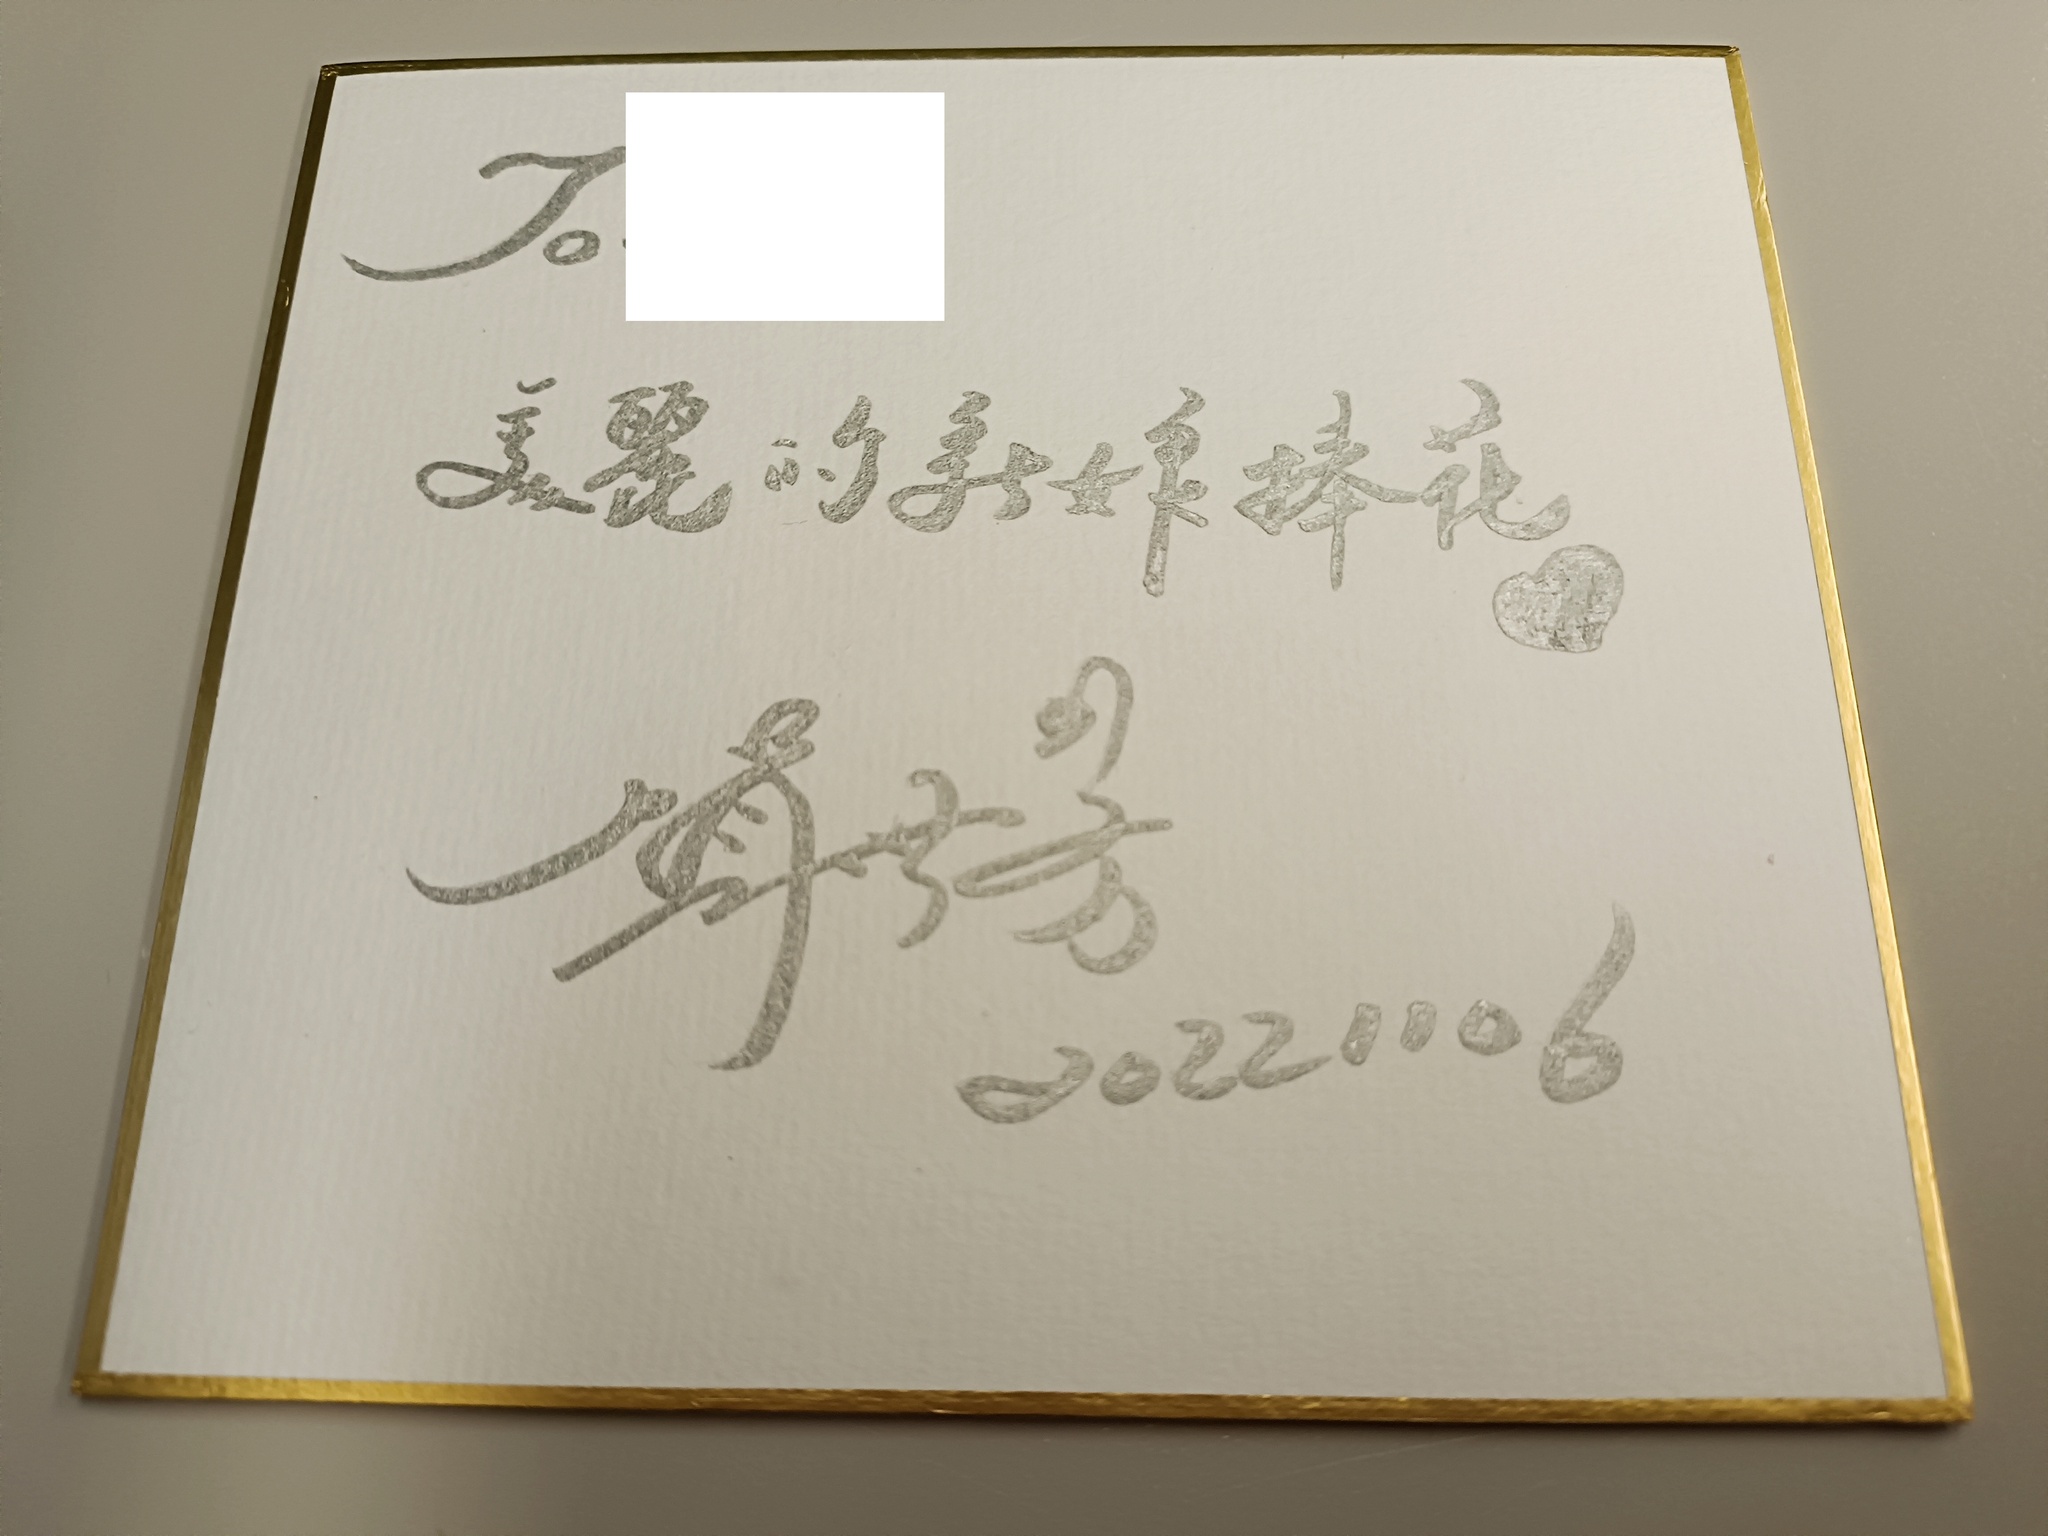 To.
美麗的新娘捧花
20221106